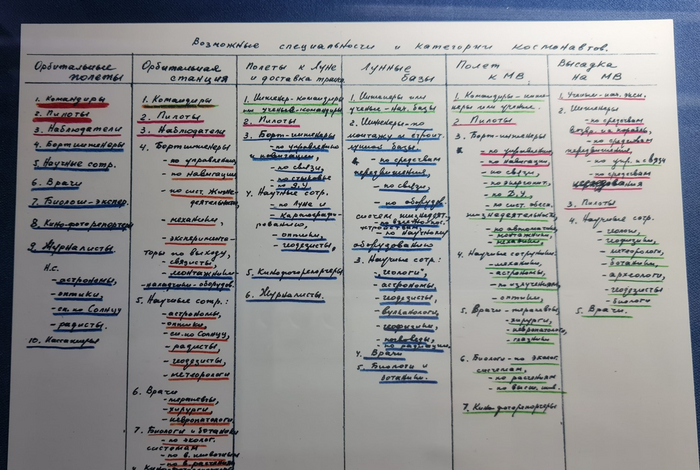 Возможные специальности и категории космонавтов.
Орбитальные
полеты
1. Командиры
2. Пилоты
3. Наблюдатели
4. Бортинженеры
5. Научные сотр.
6. Врачи
7. Биологи-экспер.
8. Кино-фоторепортеры
9. Журналисты
Н.с.
- астрономы,
- оптики,
- сп. по Солнцу
- радисты.
10. Пассажиры
Орбитальная
станция
1. Командиры
2. Пилоты
3. Наблюдатели
4. Бортинженеры
- по управлению
- по навигации
- по сист. жизне-
деятельности,
- механики,
- эксперимента-
торы по выходу,
- связисты,
- монтажники-
наладчики оборудов.
5. Научные сотр.:
- астрономы,
- оптики,
- сп. по Солнцу,
- радисты,
- геодезисты,
- метеорологи
6. Врачи
- терапевты,
- хирурги
- невропатологи.
7. Биологи и ботаники
- по эколог.
системам
- по в. животным
- по в. растениям
Полеты к Луне
и доставка грузов
1. Инженер-командиры
или ученые-командиры
2. Пилоты
3. Борт-инженеры
- по управлению
и навигации,
- по связи,
- по д.у.
4. Научные сотр.
- по Луне и
- картографи-
рованию,
- оптики,
- геодезисты,
5. Кинофоторепортеры
6. Журналисты.
Лунные
базы
1. Инженеры или
ученые - нач. базы
2. Инженеры по
монтажу и строит.
лунной базы
- по средствам
передвижения,
- по связи,
- по оборудов.
систем жизнедеят.,
- по научному
оборудованию
3. Научные сотр:
- геологи,
- астрономы
- геодезисты,
- вулканологи,
- геофизики,
- почвоведы,
- по радиации.
4. Врачи
5. Биологи и
ботаники.
Полет
к МВ,
1. Командиры-инже-
неры или ученые.
2. Пилоты
3. Борт-инженеры
- по управлению,
- по навигации,
- по связи,
- по энергоист.
- по Д.У.
- по сист. обесп.
жизнедеятельности,
- по автоматике,
- монтажники,
- механики
4. Научные сотрудники
- механики,
- астрономы,
- по излучениям
- оптики,
5. Врачи - терапевты,
- хирурги,
- невропатологи,
- глазники
6. Биологи - по эколог.
системам,
- по растениям
- по высш. жив.
7. Кинофоторепортеры
Высадка
на МВ
1. Ученый-нач. эксп.
2. Инженеры
- по средствам
возвр. на корабль,
- по средствам
передвижения,
- по упр. и связи
- по средствам
3. Пилоты
4. Научные сотр.
- геологи,
- геофизики,
- метеорологи,
- ботаники,
- археологи,
- геодезисты
- биологи
5. Врачи.